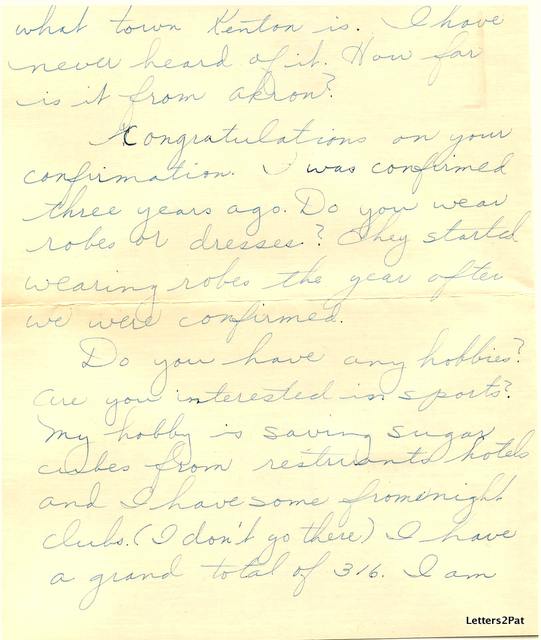 what town Kenton is. I have
never heard of it. How far
is it from akron?
Congratulations on your
confirmation. I was confirmed
three years ago. Do you wear
robes or dresses? They started
wearing robes the year after
we were confirmed.
Do you have any hobbies?
are you interested in sports?
My hobby is saving sugar
cubes from restruants hotels
and I have some from night
clubs. (I don't go there) I have
a grand total of 316. I am
Letters2Pat